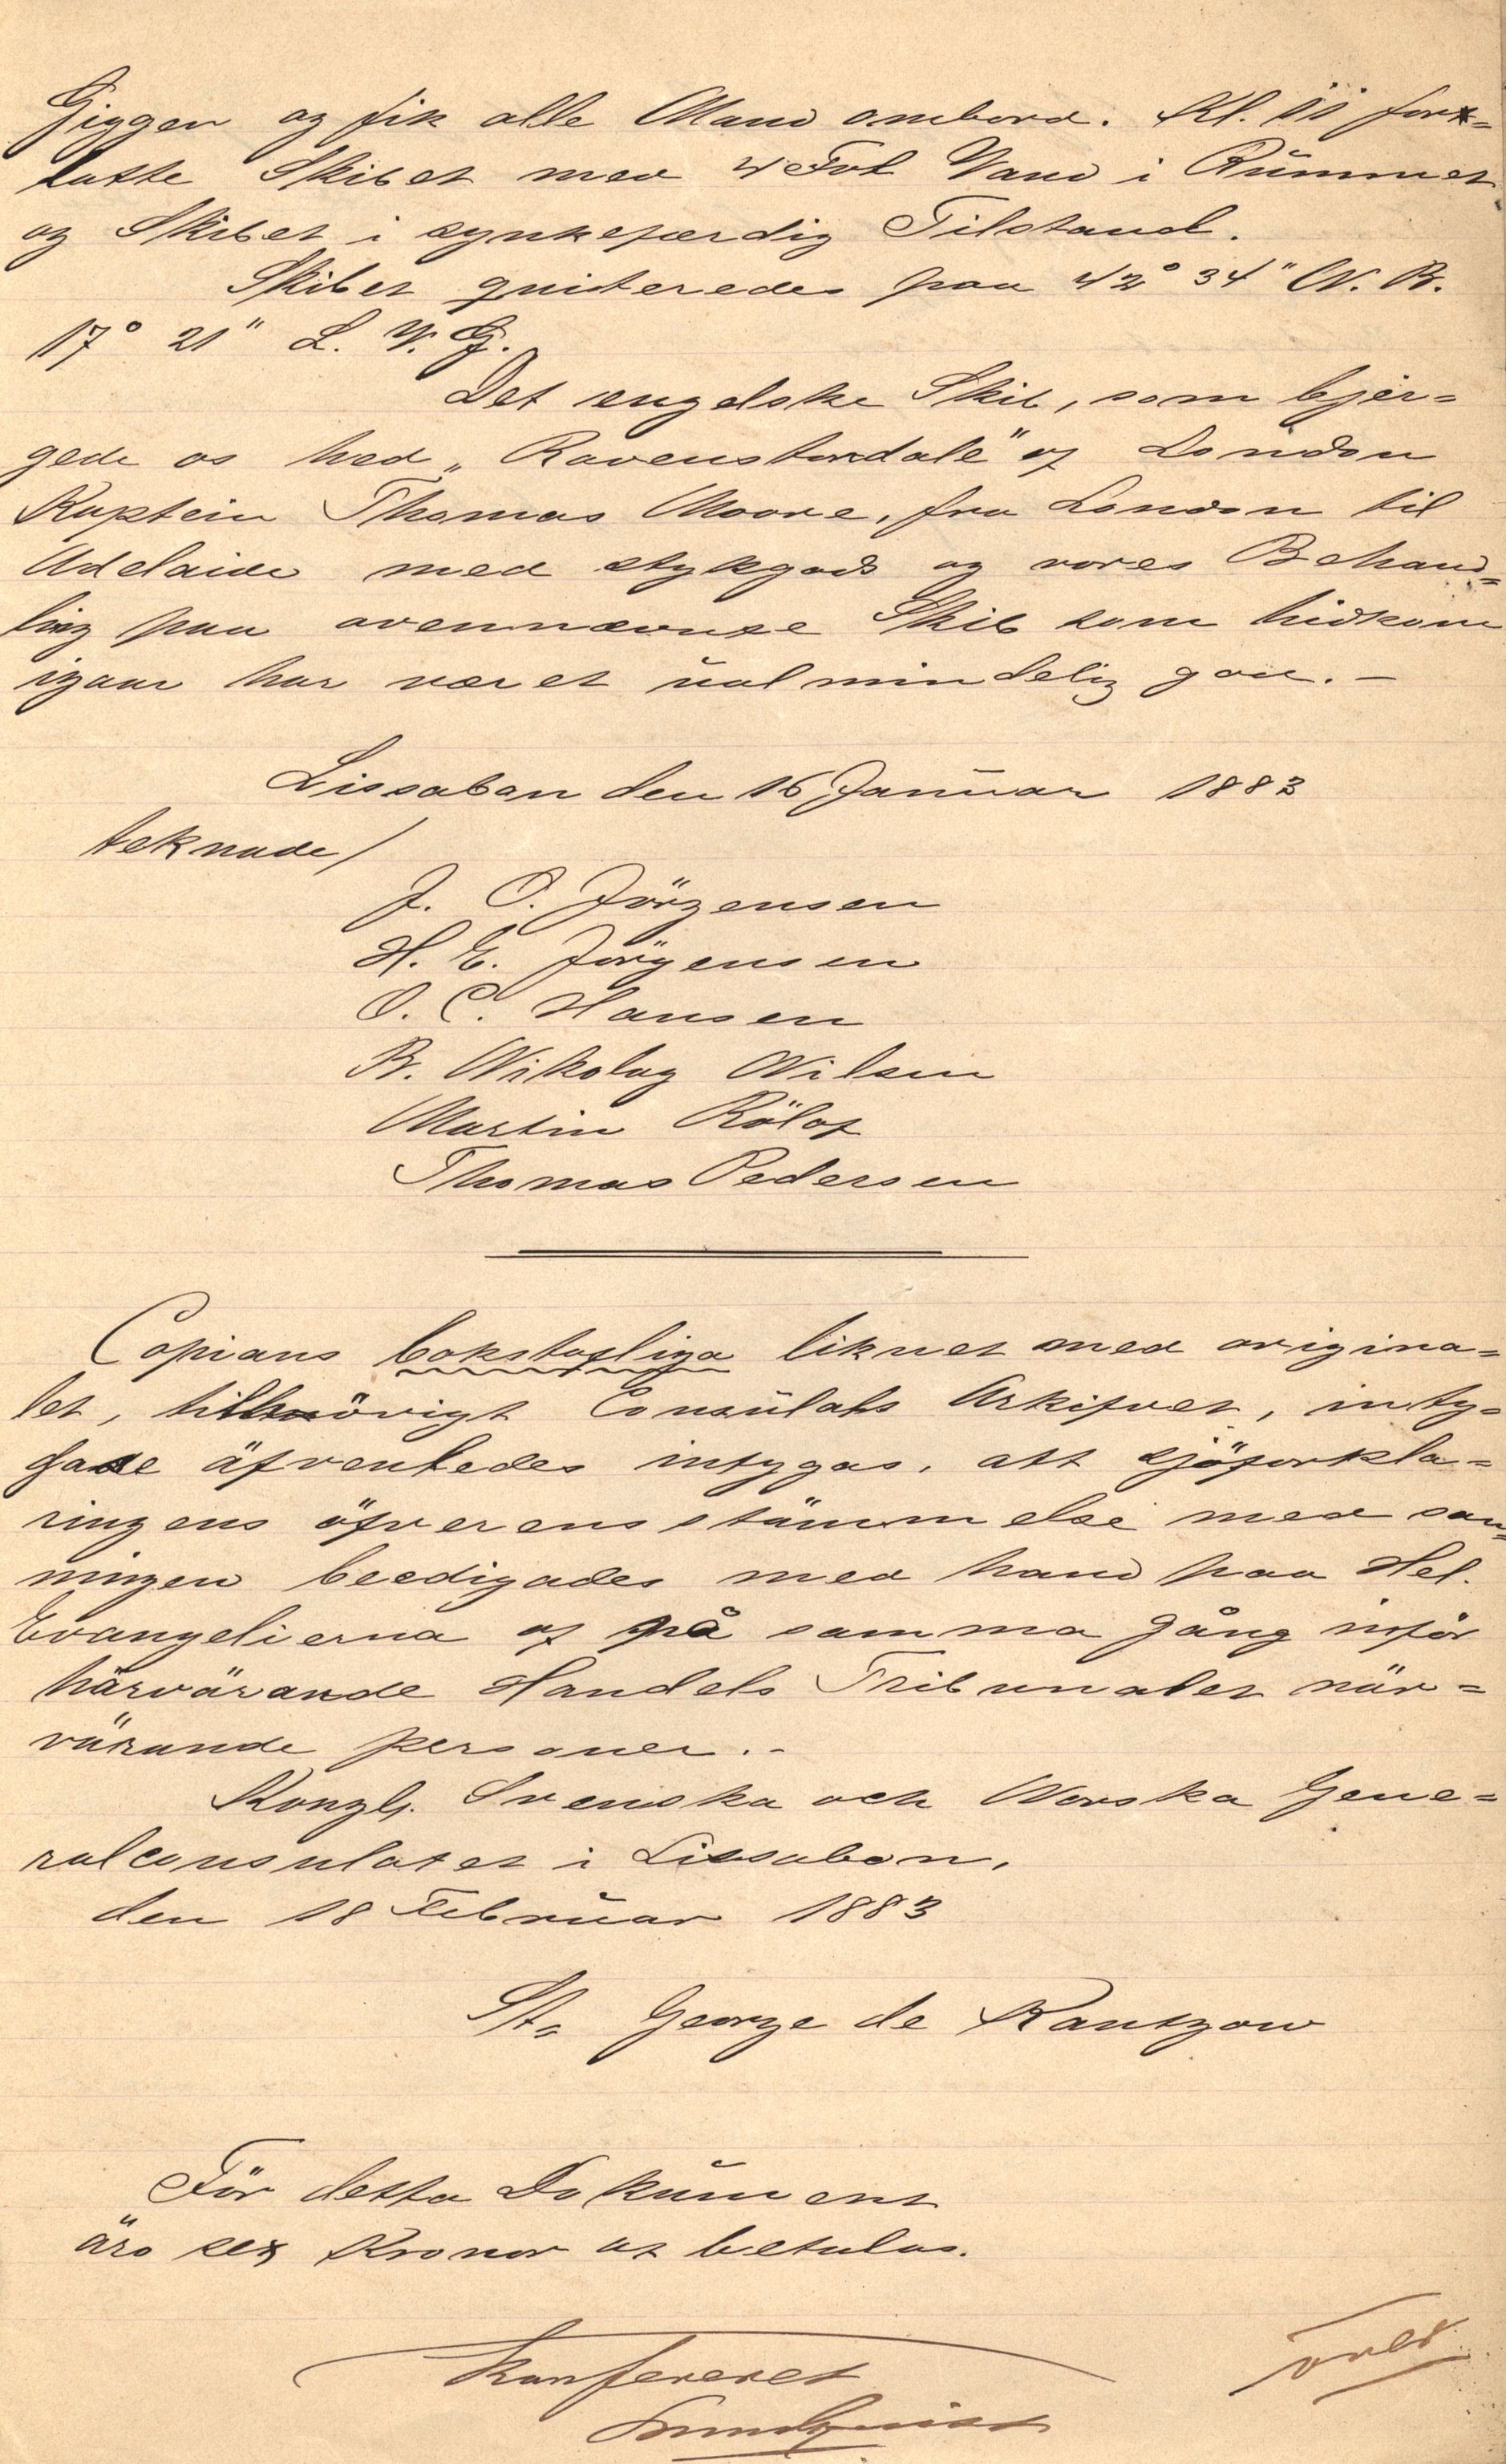 Giggen og fik alle Mand ombord. Kl. 11 for=
latte Skibet med 4 Fod Vand i Rummet
og Skibet i synkefærdig Tilstand.
Skibet quiteredes paa 42° 34" N. B.
17° 21" L. V. G.
Det engelske Skib, som bjer=
gede os hed „Ravenstondale" af London
Kaptein Thomas Moore, fra London til
Adelaide med stykgods og vores Behand=
ling paa ovennævnte Skib som hidkom
igaar har været ualmindelig god. —
Lissabon den 16 Januar 1883
teknade/
J. O. Jörgensen
H. E. Jörgensen
O. C. Hansen
B. Nikolay Nilsen
Martin Rölof
Thomas Pedersen
Copians bokstafliga likhet med origina=
let, tillhörigt Consulats Arkifvet, inty=
gade äfvenledes intygas, att sjöförkla=
ringens öfverensstämmelse med san=
ningen beedigades med hand paa Hel.
Evangelierna af på samma gång inför
härvärande Handels Tribunalet när=
värande personer. -
Kongl. Svenska och Norska Gene=
ralconsulatet i Lissabon,
den 18 Februar 1883
St. George de Rantzow
För detta Dokument
äro sex Kronor at betalas.
Konfereret